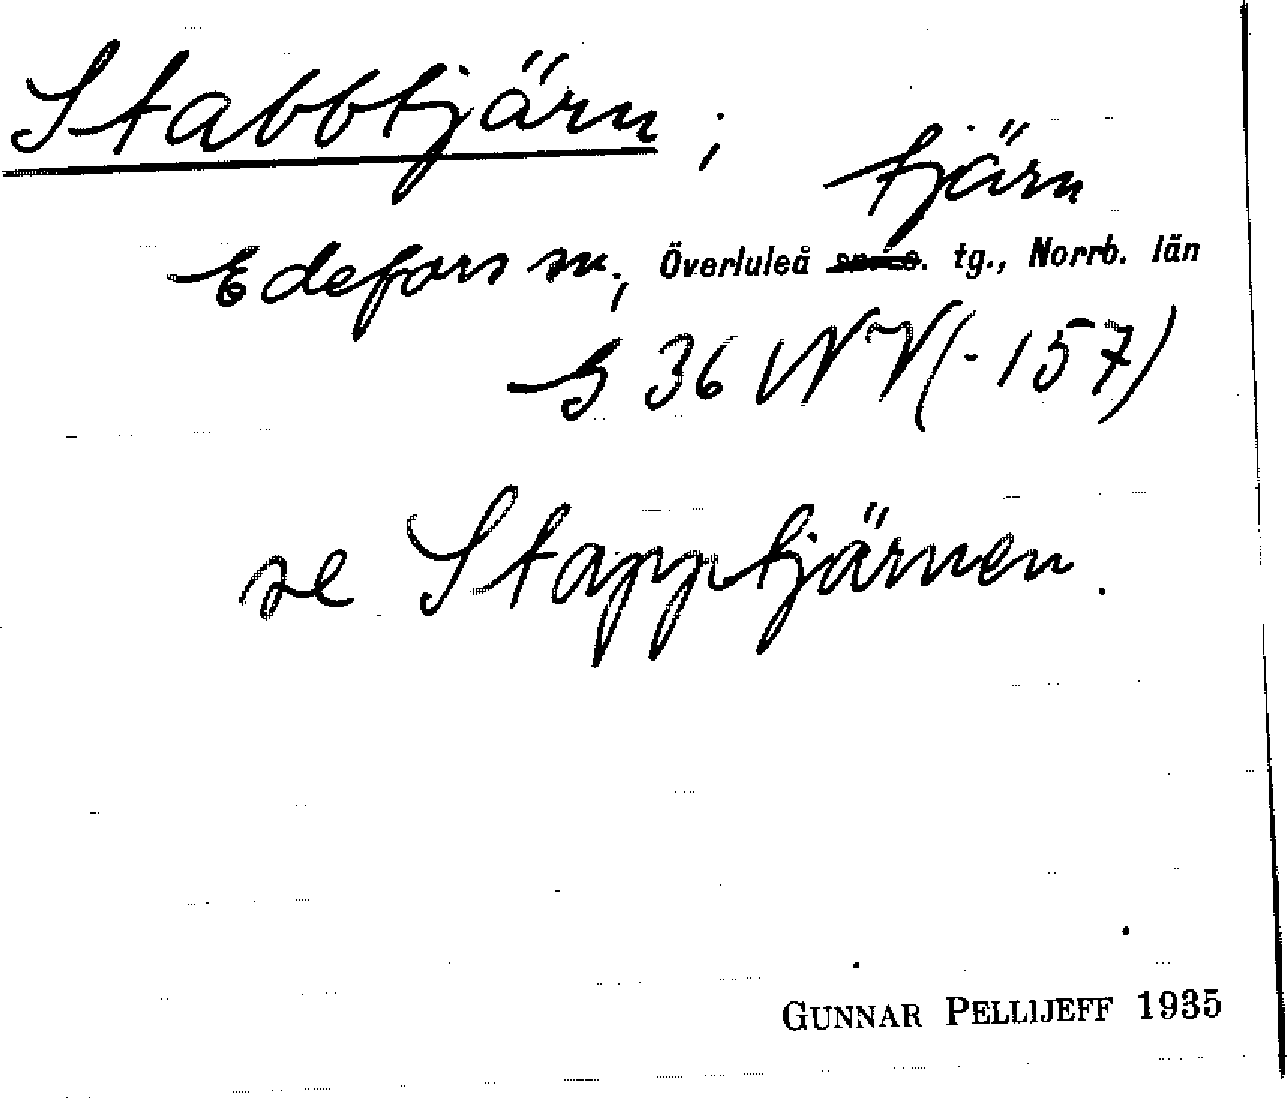 Stabbtjärn ;
tjärn
Edefors sn, Överluleå tg., Norrb. län
G 36 NV (-157)
se Stapptjärnen.
GUNNAR PELLIJEFF 1935